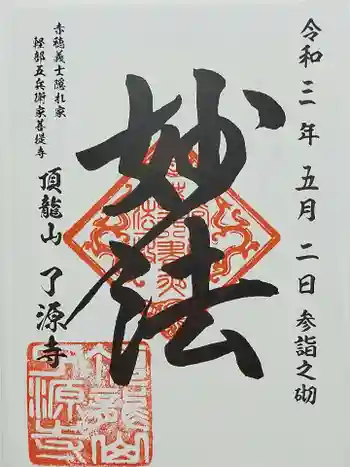 令和三年五月二日参詣之砌
妙法
赤穂義士隠れ家
軽部五兵衛家菩提寺
頂龍山 了源寺